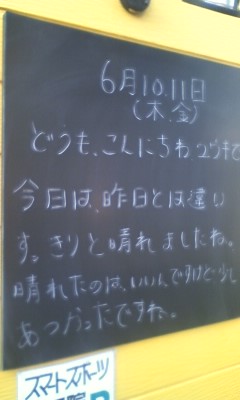 6月10.11日
(木.金)
どうも、こんにちわ ユウキで
今日は、昨日とは違い
すっきりと晴れましたね。
晴れたのは、いいんですけど少し
あつかったですね。
スマートスポーツ